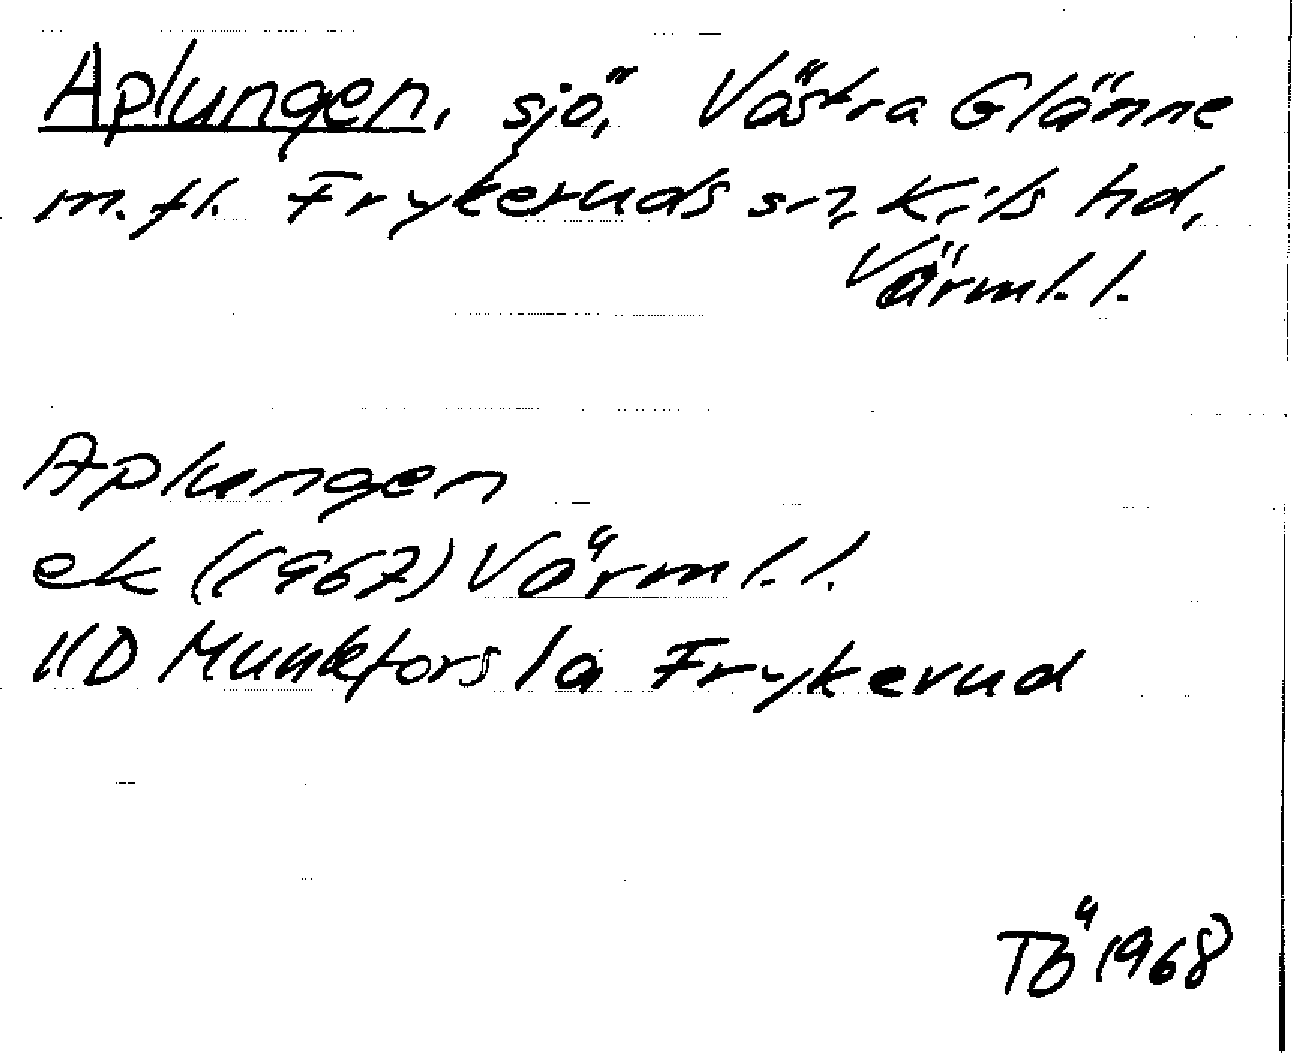 Aplungen, sjö, Västra Glänne
m.fl. Frykeruds sn, Kils hd,
Värml. l.
Aplungen
ek (1967) Värml. l.
11D Munkfors 1a Frykerud
TÖ 1968